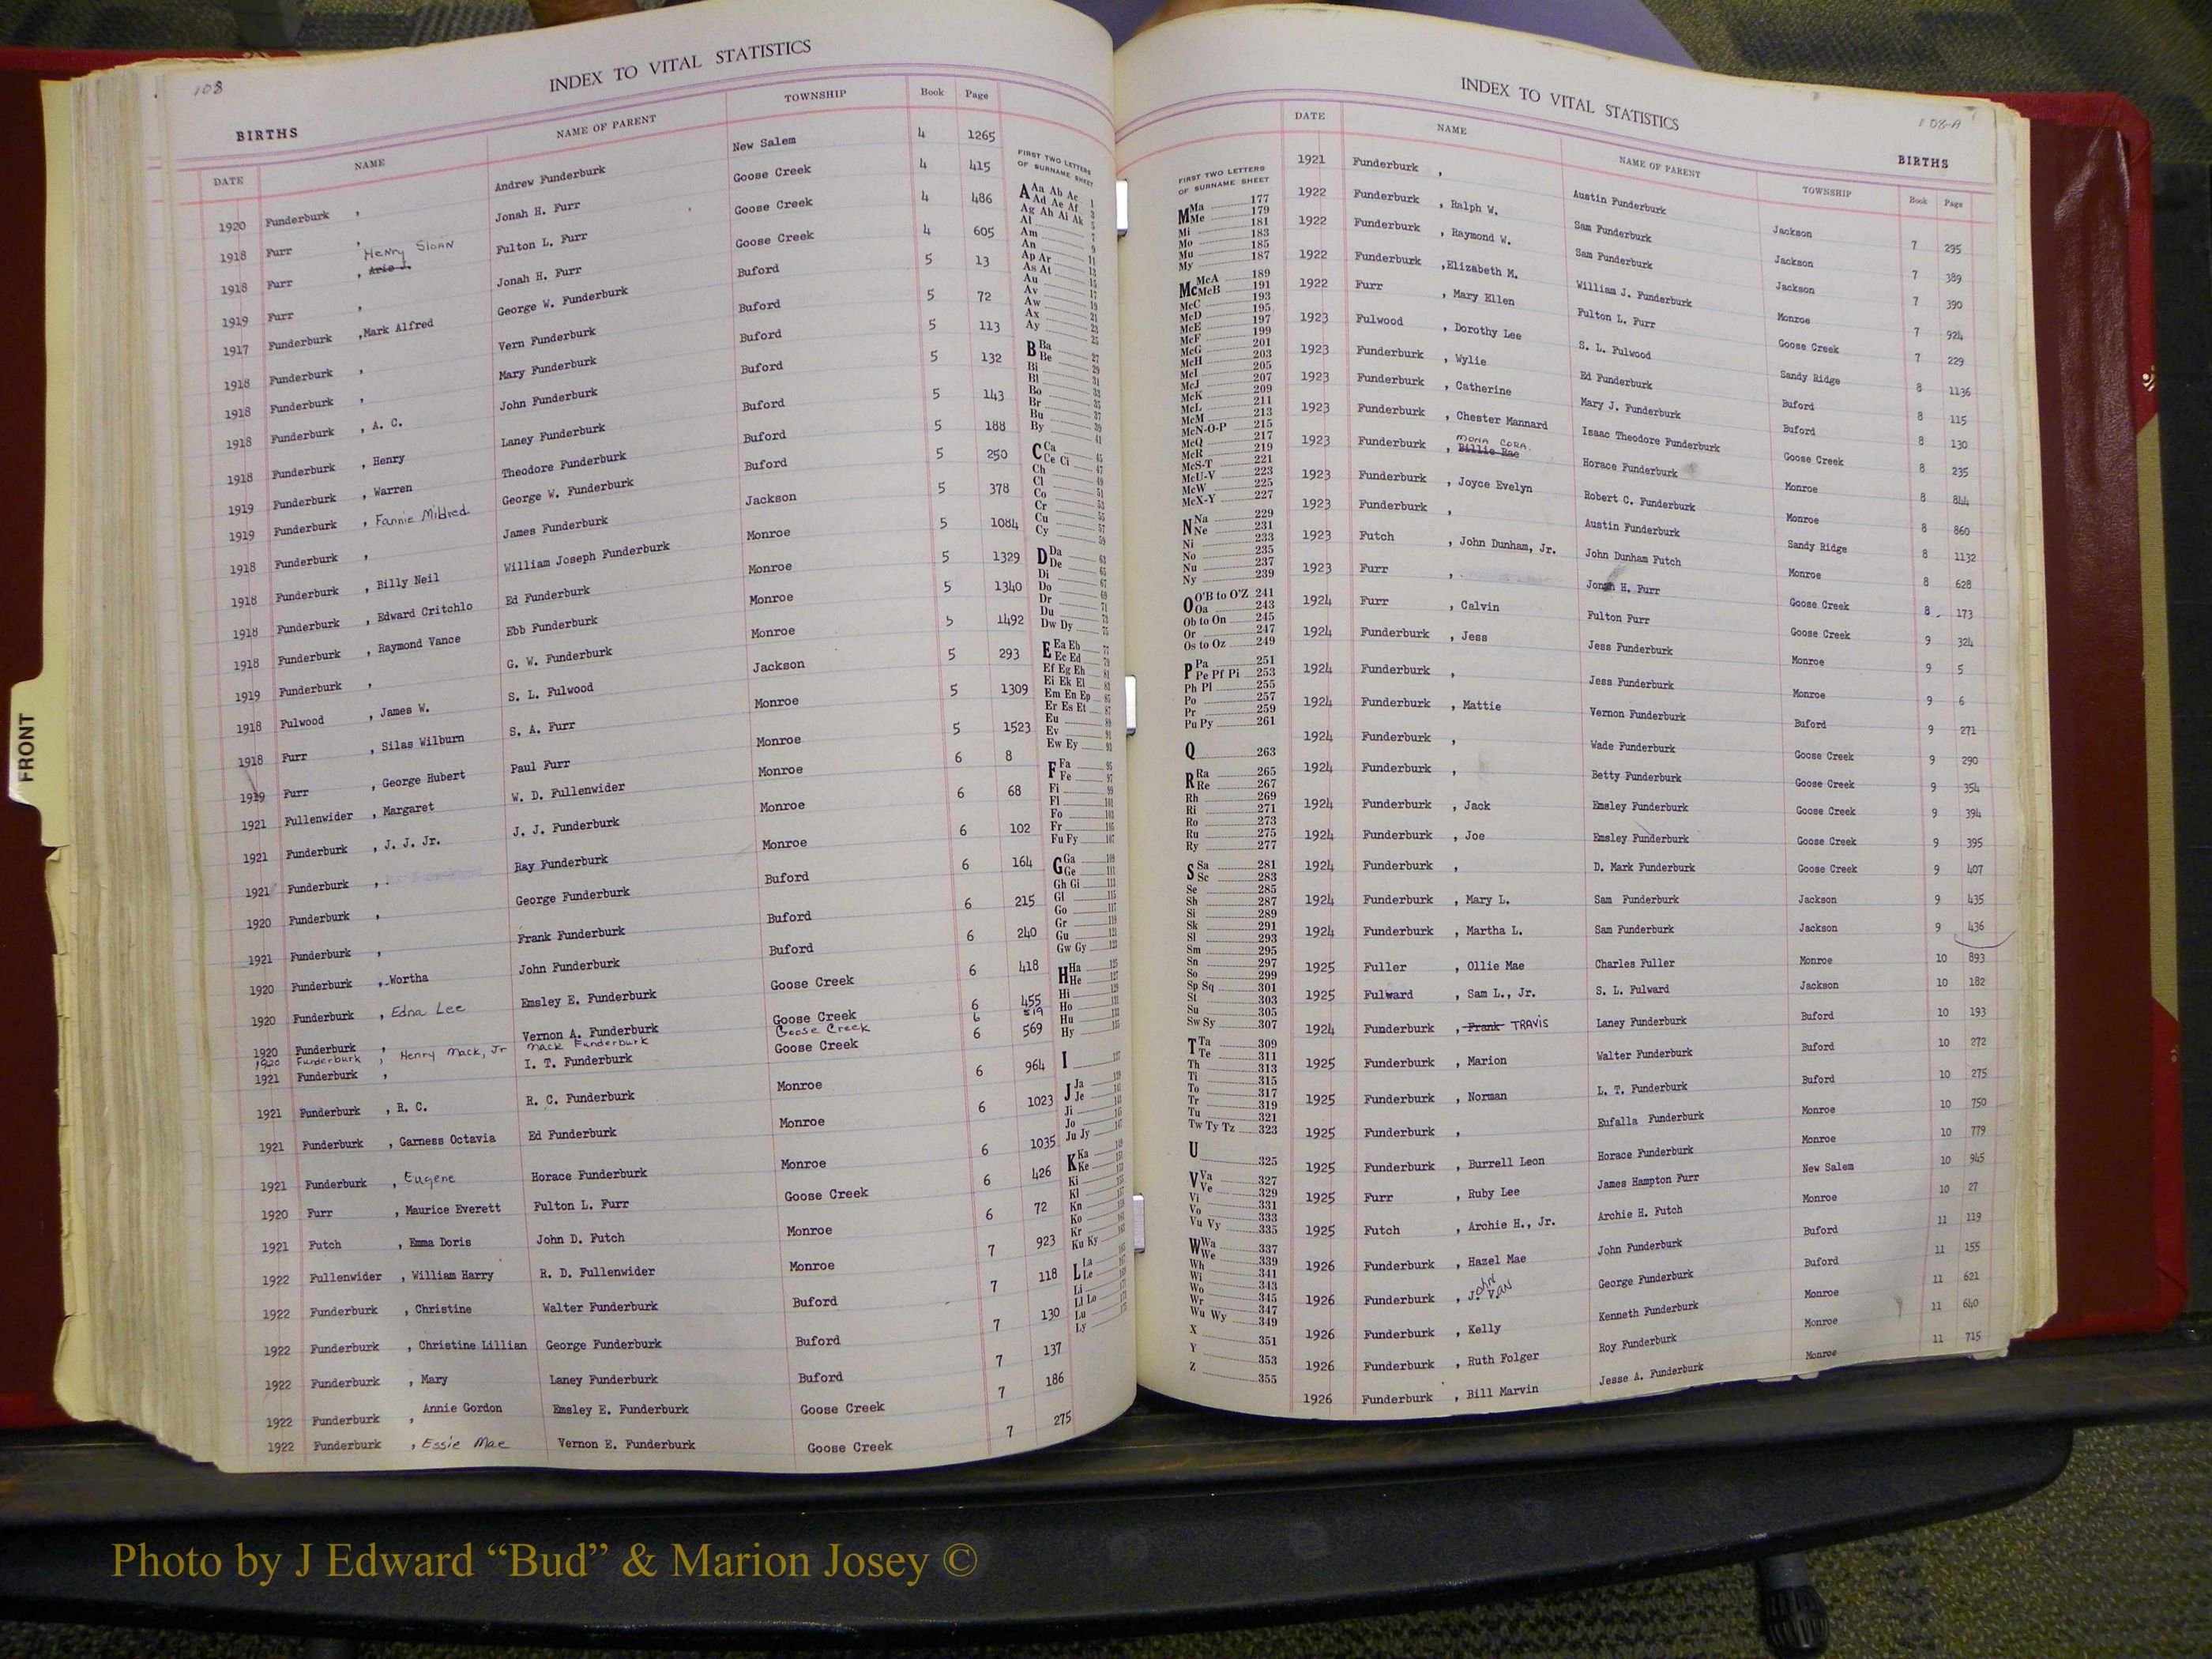 108
INDEX TO VITAL STATISTICS
BIRTHS
DATE NAME NAME OF PARENT TOWNSHIP Book Page
1920 Funderburk , Andrew Funderburk New Salem 4 1265
1918 Furr , Jonah H. Furr Goose Creek 4 415
Henry Sloan
1918 Furr , Arlo J. Fulton L. Furr Goose Creek 4 486
1919 Furr , Jonah H. Furr Goose Creek 4 605
1917 Funderburk ,Mark Alfred George W. Funderburk Buford 5 13
1918 Funderburk , Vern Funderburk Buford 5 72
1918 Funderburk , Mary Funderburk Buford 5 113
1918 Funderburk , A. C. John Funderburk Buford 5 132
1918 Funderburk , Henry Laney Funderburk Buford 5 143
1919 Funderburk , Warren Theodore Funderburk Buford 5 188
1919 Funderburk , Fannie Mildred George W. Funderburk Buford 5 250
1918 Funderburk , James Funderburk Jackson 5 378
1918 Funderburk , Billy Neil William Joseph Funderburk Monroe 5 1084
1918 Funderburk , Edward Critchlo Ed Funderburk Monroe 5 1329
1918 Funderburk , Raymond Vance Ebb Funderburk Monroe 5 1340
1919 Funderburk , G. W. Funderburk Monroe 5 1492
1918 Fulwood , James W. S. L. Fulwood Jackson 5 293
1918 Furr , Silas Wilburn S. A. Furr Monroe 5 1309
1919 Furr , George Hubert Paul Furr Monroe 5 1523
1921 Fullenwider , Margaret W. D. Fullenwider Monroe 6 8
1921 Funderburk , J. J. Jr. J. J. Funderburk Monroe 6 68
1921 Funderburk , Ray Funderburk Monroe 6 102
1920 Funderburk , George Funderburk Buford 6 164
1921 Funderburk , Frank Funderburk Buford 6 215
1920 Funderburk , Wortha John Funderburk Buford 6 240
1920 Funderburk , Edna Lee Emsley E. Funderburk Goose Creek 6 418
1920 Funderburk , Vernon A. Funderburk Goose Creek 6 455
1920 Funderburk , Henry Mack, Jr Mack Funderburk Goose Creek 6 519
1921 Funderburk , I. T. Funderburk Goose Creek 6 569
1921 Funderburk , R. C. R. C. Funderburk Monroe 6 964
1921 Funderburk , Garness Octavia Ed Funderburk Monroe 6 1023
1921 Funderburk , Eugene Horace Funderburk Monroe 6 1035
1920 Furr , Maurice Everett Fulton L. Furr Goose Creek 6 426
1921 Futch , Emma Doris John D. Futch Monroe 6 72
1922 Fullenwider , William Harry R. D. Fullenwider Monroe 7 923
1922 Funderburk , Christine Walter Funderburk Buford 7 118
1922 Funderburk , Christine Lillian George Funderburk Buford 7 130
1922 Funderburk , Mary Laney Funderburk Buford 7 137
1922 Funderburk , Annie Gordon Emsley E. Funderburk Goose Creek 7 186
1922 Funderburk , Essie Mae Vernon E. Funderburk Goose Creek 7 275
FIRST TWO LETTERS
OF SURNAME SHEET
A Aa Ab Ac 1
Ad Ae Af 3
Ag Ah Ai Ak
Al
Am
An 9
Ap Ar 11
As At 13
Au 15
Av 17
Aw 19
Ax 21
Ay 23
B Ba 27
Be 29
Bi
Bl 31
Bo 33
Br 35
Bu
By 41
C Ca 45
Ce Ci 47
Ch
Cl
Co 51
Cr 53
Cu 55
Cy 59
D Da 63
De 65
Di 67
Do
Dr 71
Du 73
Dw Dy 75
E Ea Eb 77
Ec Ed 79
Ef Eg Eh 81
Ei Ek El 83
Em En Ep 85
Er Es Et 87
Eu 89
Ev 91
Ew Ey 93
F Fa 95
Fe 97
Fi 99
Fl 101
Fo 103
Fr 105
Fu Fy 107
G Ga 109
Ge 111
Gh Gi 113
Gl 115
Go 117
Gr 119
Gu 121
Gw Gy 123
H Ha 125
He 127
Hi 129
Ho 131
Hu 133
Hy 135
I 137
J Ja 139
Je 141
Ji
Jo
Ju Jy 147
K Ka 149
Ke 151
Ki
Kl
Kn
Ko
Kr
Ku Ky
L La 165
Le 167
Li
Ll Lo
Lu
Ly 175
FRONT
INDEX TO VITAL STATISTICS
108-A
BIRTHS
DATE NAME NAME OF PARENT TOWNSHIP Book Page
1921 Funderburk , Austin Funderburk Jackson 7 295
1922 Funderburk , Ralph W. Sam Funderburk Jackson 7 389
1922 Funderburk , Raymond W. Sam Funderburk Jackson 7 390
1922 Funderburk ,Elizabeth M. William J. Funderburk Monroe 7 924
1922 Furr , Mary Ellen Fulton L. Furr Goose Creek 7 229
1923 Fulwood , Dorothy Lee S. L. Fulwood Sandy Ridge 8 1136
1923 Funderburk , Wylie Ed Funderburk Buford 8 115
1923 Funderburk , Catherine Mary J. Funderburk Buford 8 130
1923 Funderburk , Chester Mannard Isaac Theodore Funderburk Goose Creek 8 235
Mona Cora
1923 Funderburk , Billie Rae Horace Funderburk Monroe 8 844
1923 Funderburk , Joyce Evelyn Robert C. Funderburk Monroe 8 860
1923 Funderburk , Austin Funderburk Sandy Ridge 8 1132
1923 Futch , John Dunham, Jr. John Dunham Futch Monroe 8 628
1923 Furr , Jonah H. Furr Goose Creek 8 173
1924 Furr , Calvin Fulton Furr Goose Creek 9 324
1924 Funderburk , Jess Jess Funderburk Monroe 9 5
1924 Funderburk , Jess Funderburk Monroe 9 6
1924 Funderburk , Mattie Vernon Funderburk Buford 9 271
1924 Funderburk , Wade Funderburk Goose Creek 9 290
1924 Funderburk , Betty Funderburk Goose Creek 9 354
1924 Funderburk , Jack Emsley Funderburk Goose Creek 9 394
1924 Funderburk , Joe Emsley Funderburk Goose Creek 9 395
1924 Funderburk , D. Mark Funderburk Goose Creek 9 407
1924 Funderburk , Mary L. Sam Funderburk Jackson 9 435
1924 Funderburk , Martha L. Sam Funderburk Jackson 9 436
1925 Fuller , Ollie Mae Charles Fuller Monroe 10 893
1925 Fulward , Sam L., Jr. S. L. Fulward Jackson 10 182
1924 Funderburk , Frank TRAVIS Laney Funderburk Buford 10 193
1925 Funderburk , Marion Walter Funderburk Buford 10 272
1925 Funderburk , Norman L. T. Funderburk Buford 10 275
1925 Funderburk , Eufalla Funderburk Monroe 10 750
1925 Funderburk , Burrell Leon Horace Funderburk Monroe 10 779
1925 Furr , Ruby Lee James Hampton Furr New Salem 10 945
1925 Futch , Archie H., Jr. Archie H. Futch Monroe 10 27
1926 Funderburk , Hazel Mae John Funderburk Buford 11 119
1926 Funderburk , JOHN VAN George Funderburk Buford 11 155
1926 Funderburk , Kelly Kenneth Funderburk Monroe 11 621
1926 Funderburk , Ruth Folger Roy Funderburk Monroe 11 640
1926 Funderburk , Bill Marvin Jesse A. Funderburk Monroe 11 715
FIRST TWO LETTERS
OF SURNAME SHEET
M Ma 177
Me 179
Mi 181
Mo 183
Mu 185
My 187
Mc McA 189
McB 191
McC 193
McD 195
McE 197
McF 199
McG 201
McH 203
McI 205
McJ 207
McK 209
McL 211
McM 213
McN-O-P 215
McQ 217
McR 219
McS-T 221
McU-V 223
McW 225
McX-Y 227
N Na 229
Ne 231
Ni 233
No 235
Nu 237
Ny 239
O O'B to O'Z 241
Oa 243
Ob to On 245
Or 247
Os to Oz 249
P Pa 251
Pe Pf Pi 253
Ph Pl 255
Po 257
Pr 259
Pu Py 261
Q 263
R Ra 265
Re 267
Rh 269
Ri 271
Ro 273
Ru 275
Ry 277
S Sa 281
Sc 283
Se 285
Sh 287
Si 289
Sk 291
Sl 293
Sm 295
Sn 297
So 299
Sp Sq 301
St 303
Su 305
Sw Sy 307
T Ta 309
Te 311
Th 313
Ti 315
To 317
Tr 319
Tu 321
Tw Ty Tz 323
U 325
V Va 327
Ve 329
Vi 331
Vo 333
Vu Vy 335
W Wa 337
We 339
Wh 341
Wi 343
Wo 345
Wr 347
Wu Wy 349
X 351
Y 353
Z 355
Photo by J Edward “Bud” & Marion Josey ©